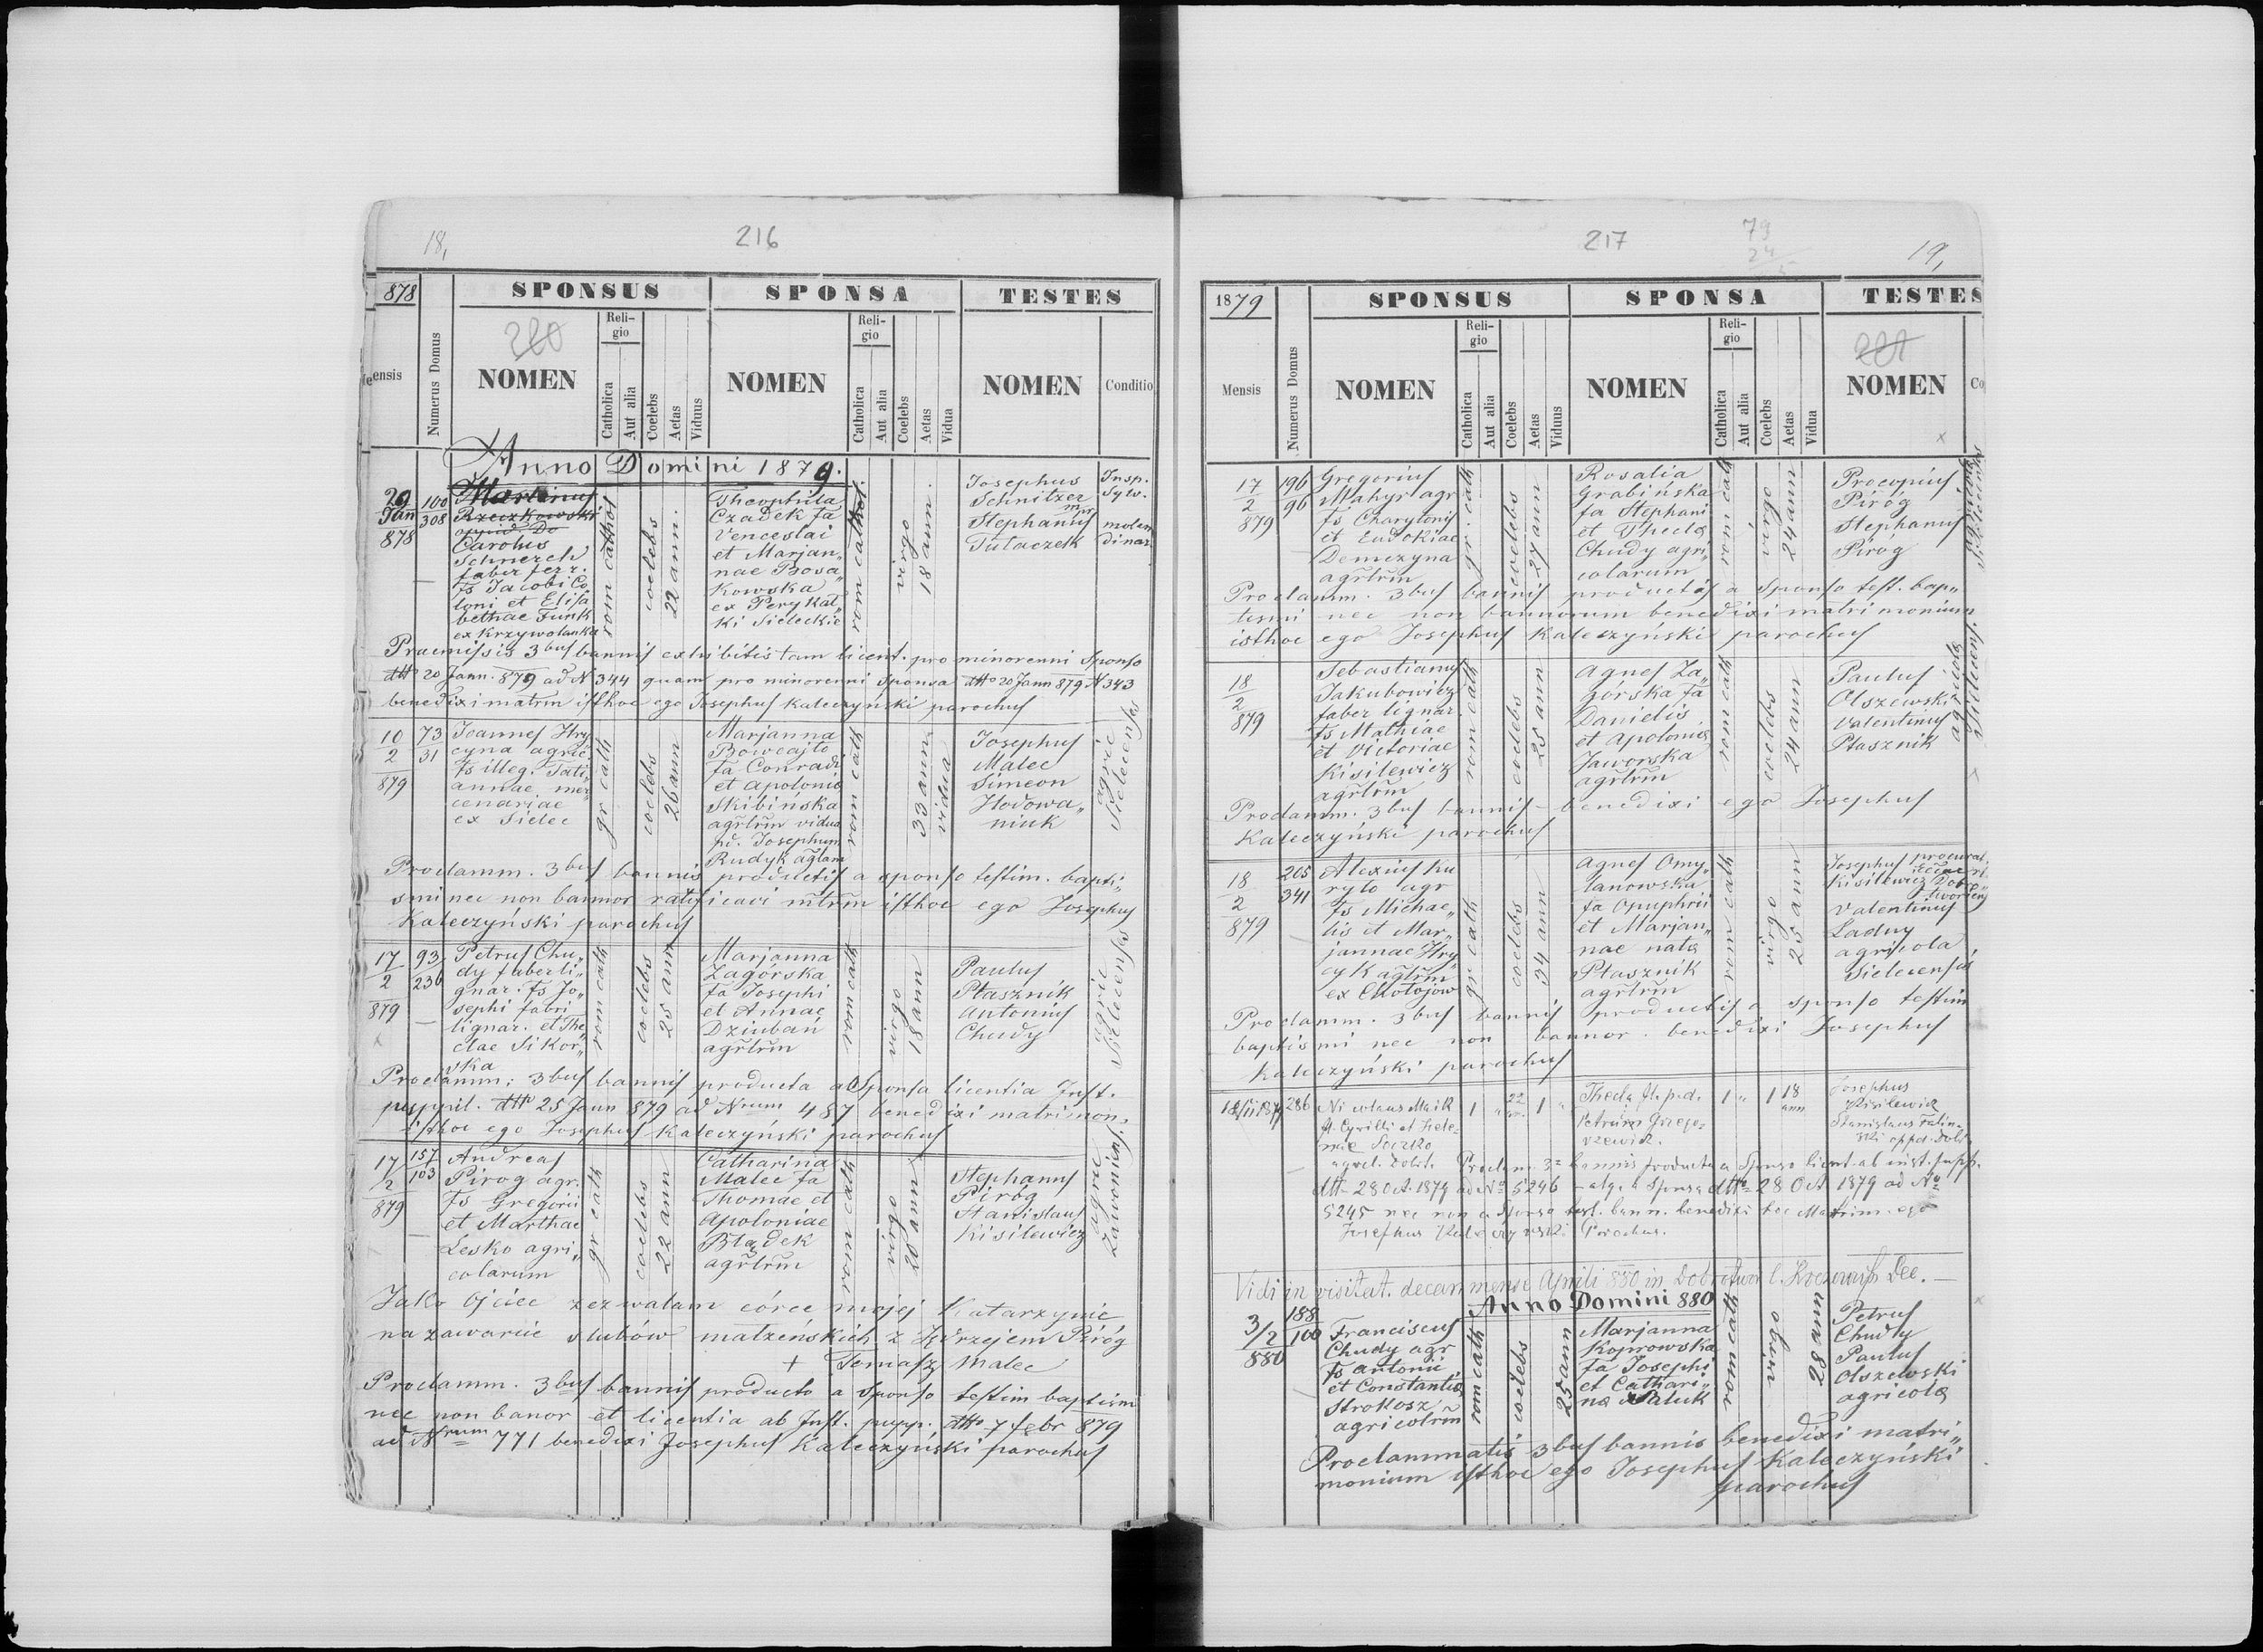 18,
216
878
SPONSUS
SPONSA
TESTES
Mensis
Numerus Domus
280
NOMEN
Religio
Catholica
Aut alia
Coelebs
Aetas
Viduus
NOMEN
Religio
Catholica
Aut alia
Coelebs
Aetas
Vidua
NOMEN
Conditio
Anno Domini 1879.
29
Jan
878
100
308
Martinus
Rzeczkowski
Carolus
Schnerch
faber ferr.
fs Jacobi Co
loni et Elisa
bethae Funk
ex Krzywolanka
rom cathol
coelebs
22 ann.
Theophila
Czadek fa
Venceslai
et Marjan„
nae Bosa„
kowska
ex Perykal„
ki Sieleckie
rom cathol.
virgo
18 ann.
Josephus
Schnitzer
Stephanus
Tulaczek
Insp.
Sylv.
molen
dinar.
Praemissis 3bus bannis exhibitis tam licent. pro minorenni Sponso
dtto 20 Jann. 879 ad N 344 quam pro minorenni Sponsa dtto 20 Jann 879 N 343
benedixi matrm isthoc ego Josephus Kaleczyński parochus
10
2
879
73
31
Joannes Hry„
cyna agric
fs illeg. Tati„
annae mer„
cenariae
ex Sielec
gr cath
coelebs
26 ann
Marjanna
Bowcajło
fa Conradi
et Apolonia
Skibińska
agrlrm vidua
pd. Josephum
Rudyk aglam
rom cath
33 ann
vidua
Josephus
Malec
Simeon
Hodowa„
niuk
agric
Sielecenses
Proclamm. 3bus bannis productis a sponso testim. bapti„
smi nec non bannor ratificavi mtrm isthoc ego Josephus
Kaleczyński parochus
17
2
879
93
236
Petrus Chu„
dy faber li„
gnar. fs Jo„
sephi fabri
lignar. et The„
clae Sikor„
ska
rom cath
coelebs
25 ann
Marjanna
Zagórska
fa Josephi
et Annae
Dziuban
agrlrm
rom cath
virgo
18 ann
Paulus
Ptasznik
Antonius
Chudy
agric
Sielecenses
Proclamm: 3bus bannis producta ab Sponsa licentia Inst.
puppil. dtto 25 Jann 879 ad Nrum 487 benedixi matrimon„
isthoc ego Josephus Kaleczyński parochus
17
2
879
157
103
Andreas
Pirog agr.
fs Gregorii
et Marthae
Lesko agri„
colarum
gr cath
coelebs
22 ann
Catharina
Malec fa
Thomae et
Apoloniae
Błądek
agrlrm
rom cath
virgo
20 ann
Stephanus
Piróg
Stanislaus
Kisilewicz
agric
Zawoniens.
Jako Ojciec zezwalam córce mojej Katarzynie
na zawarcie slubów małżeńskich z Jędrzejem Piróg
+ Tomasz Malec
Proclamm. 3bus bannis producto a Sponso testim baptism
nec non banor et licentia ab Inst. pupp. dtto 7 febr 879
ad Nrum 771 benedixi Josephus Kaleczyński parochus
217
79
24
19,
1879
SPONSUS
SPONSA
TESTES
Mensis
Numerus Domus
NOMEN
Religio
Catholica
Aut alia
Coelebs
Aetas
Viduus
NOMEN
Religio
Catholica
Aut alia
Coelebs
Aetas
Vidua
281
NOMEN
Co
17
2
879
196
96
Gregorius
Mahyr agr
fs Charytonis
et Eudokiae
Demczyna
agrlrm
gr. cath
coelebs
27 ann
Rosalia
Grabińska
fa Stephani
et Thecla
Chudy agri„
colarum
rom cath
virgo
24 ann
Procopius
Piróg
Stephanus
Piróg
Proclamm. 3bus bannis productis a Sponso test. bap„
tismi nec non bannorum benedixi matrimonium
isthoc ego Josephus Kaleczyński parochus
18
2
879
Sebastianus
Jakubowicz
faber lignar.
fs Mathiae
et Victoriae
Kisilewicz
agrlrm
rom cath
coelebs
25 ann
Agnes Za„
górska fa
Danielis
et Apolonia
Jaworska
agrlrm
rom cath
coelebs
24 ann
Paulus
Olszewski
Valentinus
Ptasznik
agricola
Sielecens.
Proclamm. 3bus bannis benedixi ego Josephus
Kaleczyński parochus
18
2
879
205
341
Alexius Ku
ryło agr
fs Michae„
lis et Mar„
jannae Hry
cyk agrlrm
ex Chołojów
gr cath
coelebs
34 ann
Agnes Omy„
lanowska
fa Onuphrii
et Marjan„
nae nata
Ptasznik
agrlrm
rom cath
virgo
25 ann
Josephus
Kisilewicz
Valentinus
Ladny
agricola
Sielecensis
Proclamm. 3bus bannis productis a sponso testim
baptismi nec non bannor. benedixi Josephus
Kaleczyński parochus
286
Nicolaus Maik
fs. Cyrilli et Hele„
nae Soczko
1
22
1
Thecla
Petrus Grzego„
rzewicz.
1
1
18
ann
Josephus
Kisilewicz
Stanislaus
Proclam. 3 bannis producta a Sponso licent. ab inst. pupp.
dtto 28 Oct. 1879 ad No 5246 atq. a Sponsa dtto 28 Oct 1879 ad No
5245 nec non a Sponso test. bann. benedixi hoc Matrim. ego
Josephus Kaleczyński Parochus.
Vidi in visitat. decan mense Aprili 880 in Dobrotwor Dec.
Anno Domini 880
3/2
880
188
100
Franciscus
Chudy agr
fs Antonii
et Constantia
Strokosz
agricolrm
rom cath
coelebs
25 ann
Marjanna
Koprowska
fa Josephi
et Cathari„
na Paluk
rom cath
virgo
28 ann
Petrus
Chudy
Paulus
Olszewski
agricola
Proclammatis 3bus bannis benedixi matri„
monium isthoc ego Josephus Kaleczyński
parochus